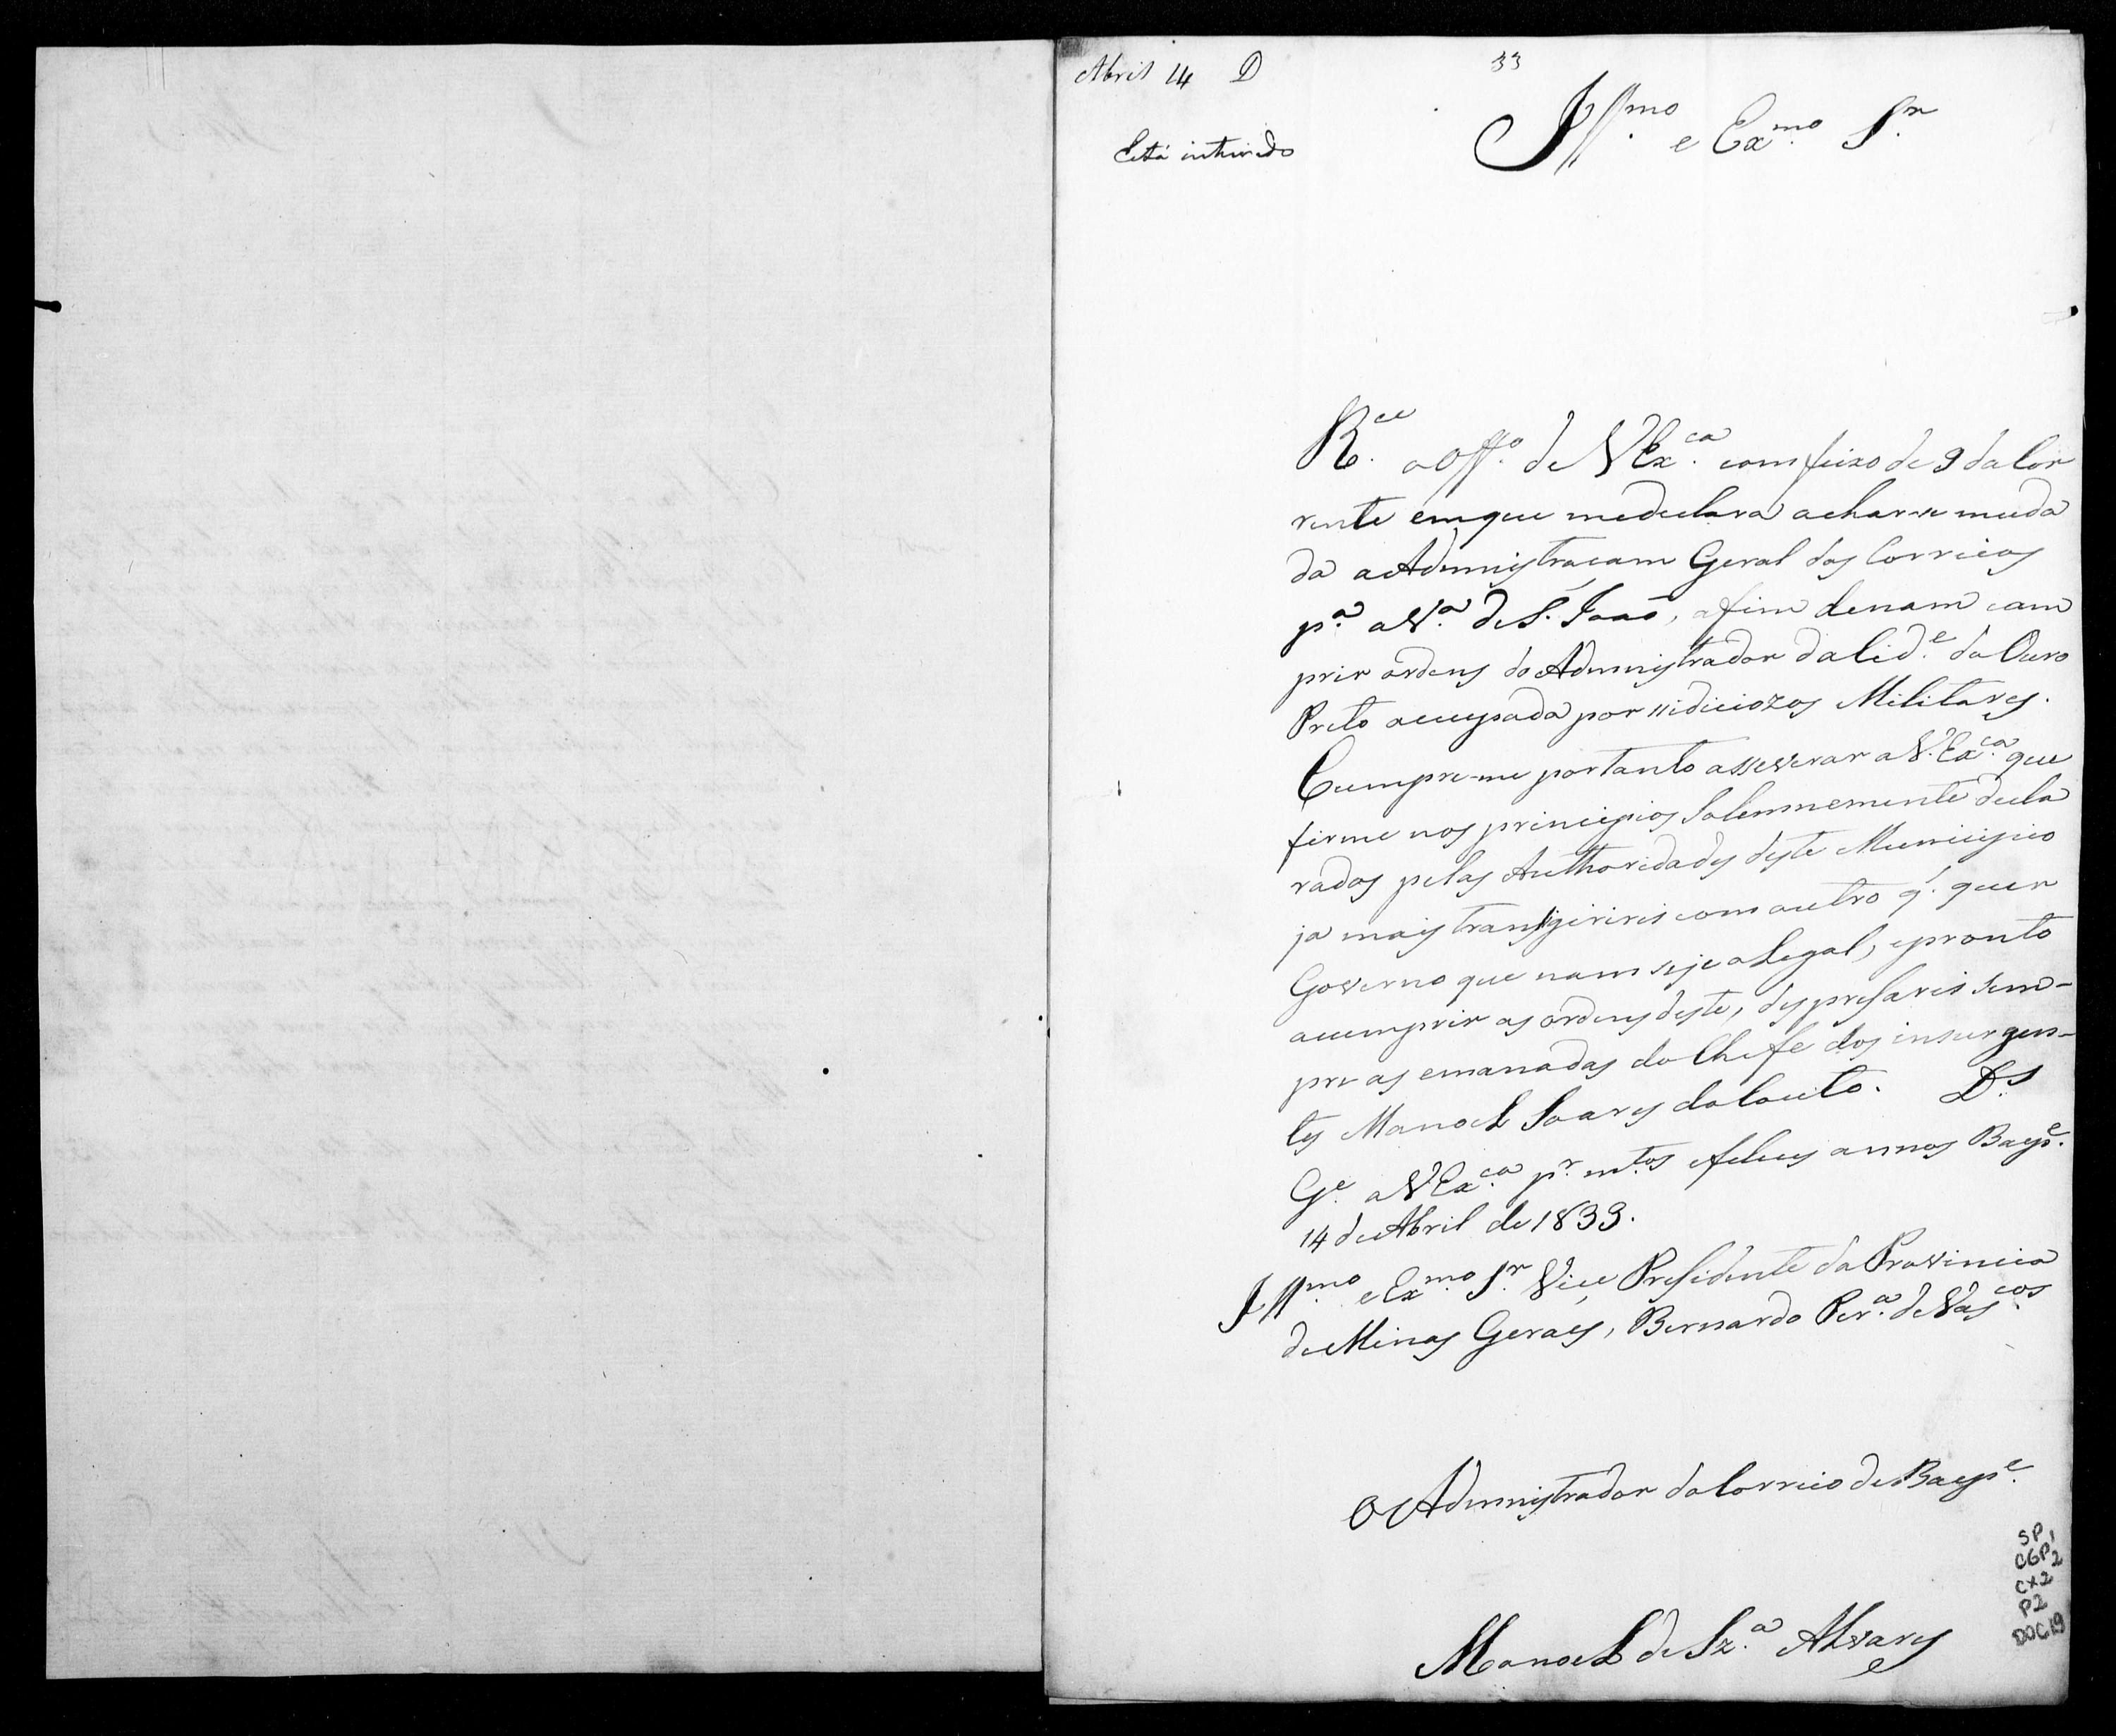 Abril 14 D
33
Está inteirado
Illmo. e Exmo. Sr.
Rce. o Offo. de VExca. com feixo de 9 do Cor
rente emque medeclara achar-se muda
da a Administracam Geral dos Correios
pa. a Va. de S. Joaõ, afim denam cum
prir ordens do Administrador da Cide. do Ouro
Preto occupada por sidiciozos Militares.
Cumpre-me portanto asseverar a V.Exca. que
firme nos principios Solemnemente decla
rados pelas Authoridades deste Municipio
ja mais transigirei com outro q. quer
Governo que nam seje o Legal, e pronto
acumprir as ordens deste, despresarei sem-
pre as emanadas do Chefe dos insurgen-
tes Manoel Soares do Couto. Ds.
Ge. a VExca. pr. mtos. efelices annos Baepe.
14 de Abril de 1833.
Illmo. e Exmo. Sr. Vice Presidente da Provincia
de Minas Geraes, Bernardo Pera. de Vascos.
O Administrador do Correio de Baepe.
Manoel de Sza. Alvares
SP1
CGP2
CX2
P2
DOC.19